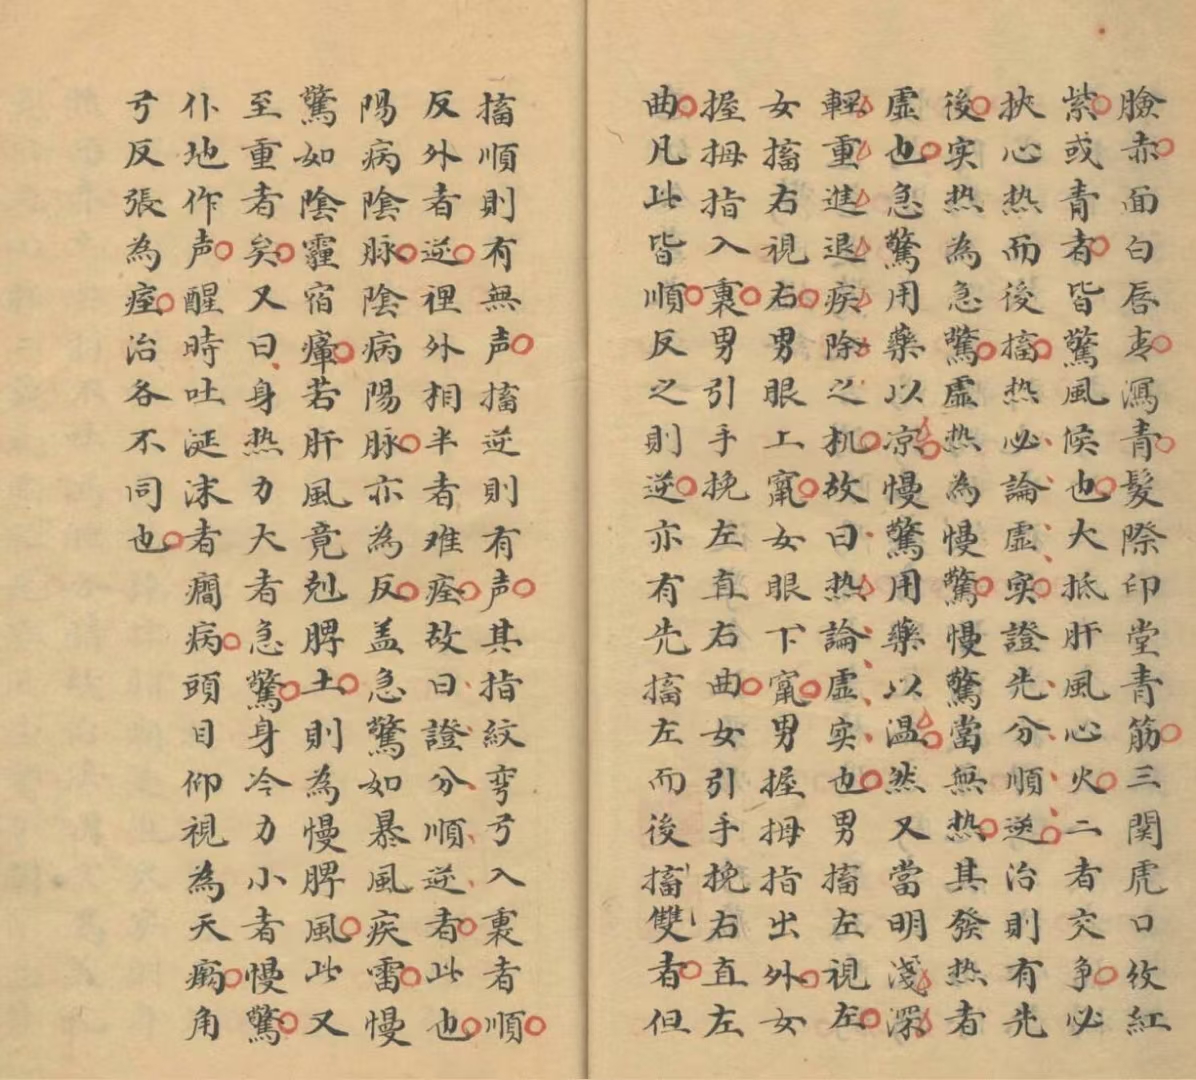 臉赤面白唇青瀉青髮際印堂青筋三関虎口紋紅
紫或青者皆驚風候也大抵肝風心火二者交争必
挾心热而後搐热必論虚实證先分順逆治則有先
後实热為急驚虚热為慢驚慢驚當無热其發热者
虚也急驚用藥以凉慢驚用藥以温然又當明淺深
輕重進退疾除之机故曰热論虚实也男搐左視左
女搐右視右男眼上竄女眼下竄男握拇指出外女
握拇指入裏男引手挽左直右曲女引手挽右直左
曲凡此皆順反之則逆亦有先搐左而後搐雙者但
搐順則有無声搐逆則有声其指紋弯弓入裏者順
反外者逆裡外相半者难痊故曰證分順逆者此也
陽病陰脉陰病陽脉亦為反盖急驚如暴風疾雷慢
驚如陰霾宿瘴若肝風竟剋脾土則為慢脾風此又
至重者矣又曰身热力大者急驚身冷力小者慢驚
仆地作声醒時吐涎沫者癎病頭目仰視為天痫角
弓反張為痓治各不同也